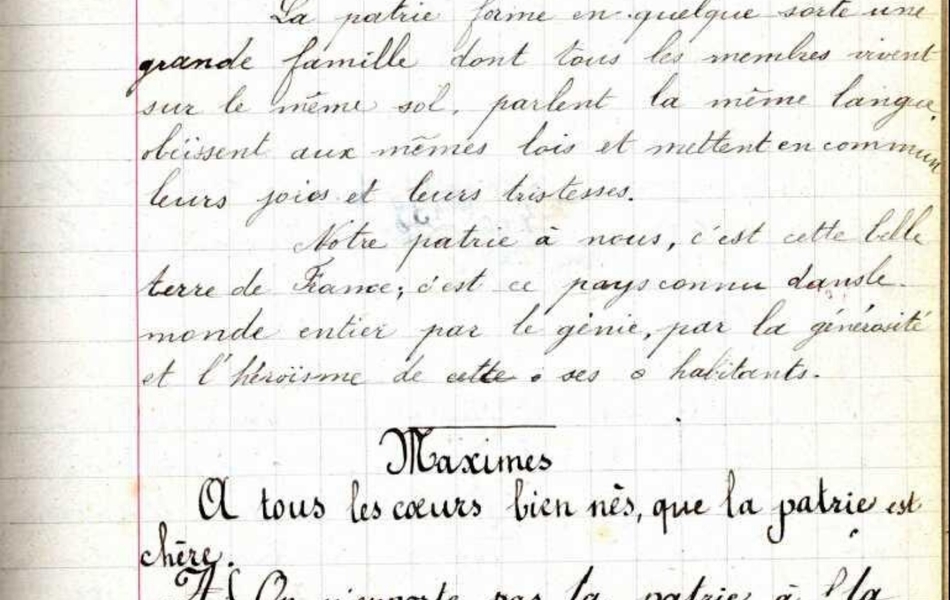 La patrie forme en quelque sorte une
grande famille dont tous les membres vivent
sur le même sol, parlent la même langue,
obéissent aux mêmes lois et mettent en commun
leurs joies et leurs tristesses.
Notre patrie à nous, c'est cette belle
terre de France; c'est ce pays connu dans le
monde entier par le génie, par la générosité
et l'héroïsme de cette ses habitants.
Maximes
A tous les cœurs bien nés, que la patrie est
chère.
On n'emporte pas la patrie à la